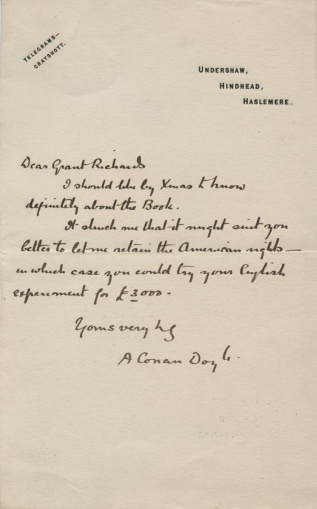 TELEGRAMS—
GRAYSHOTT.
UNDERSHAW,
HINDHEAD,
HASLEMERE.
Dear Grant Richards
I should like by Xmas to know
definitely about the Book.
It struck me that it might suit you
better to let me retain the American rights —
in which case you could try your English
experiment for £3000.
Yours very
A Conan Doyle.